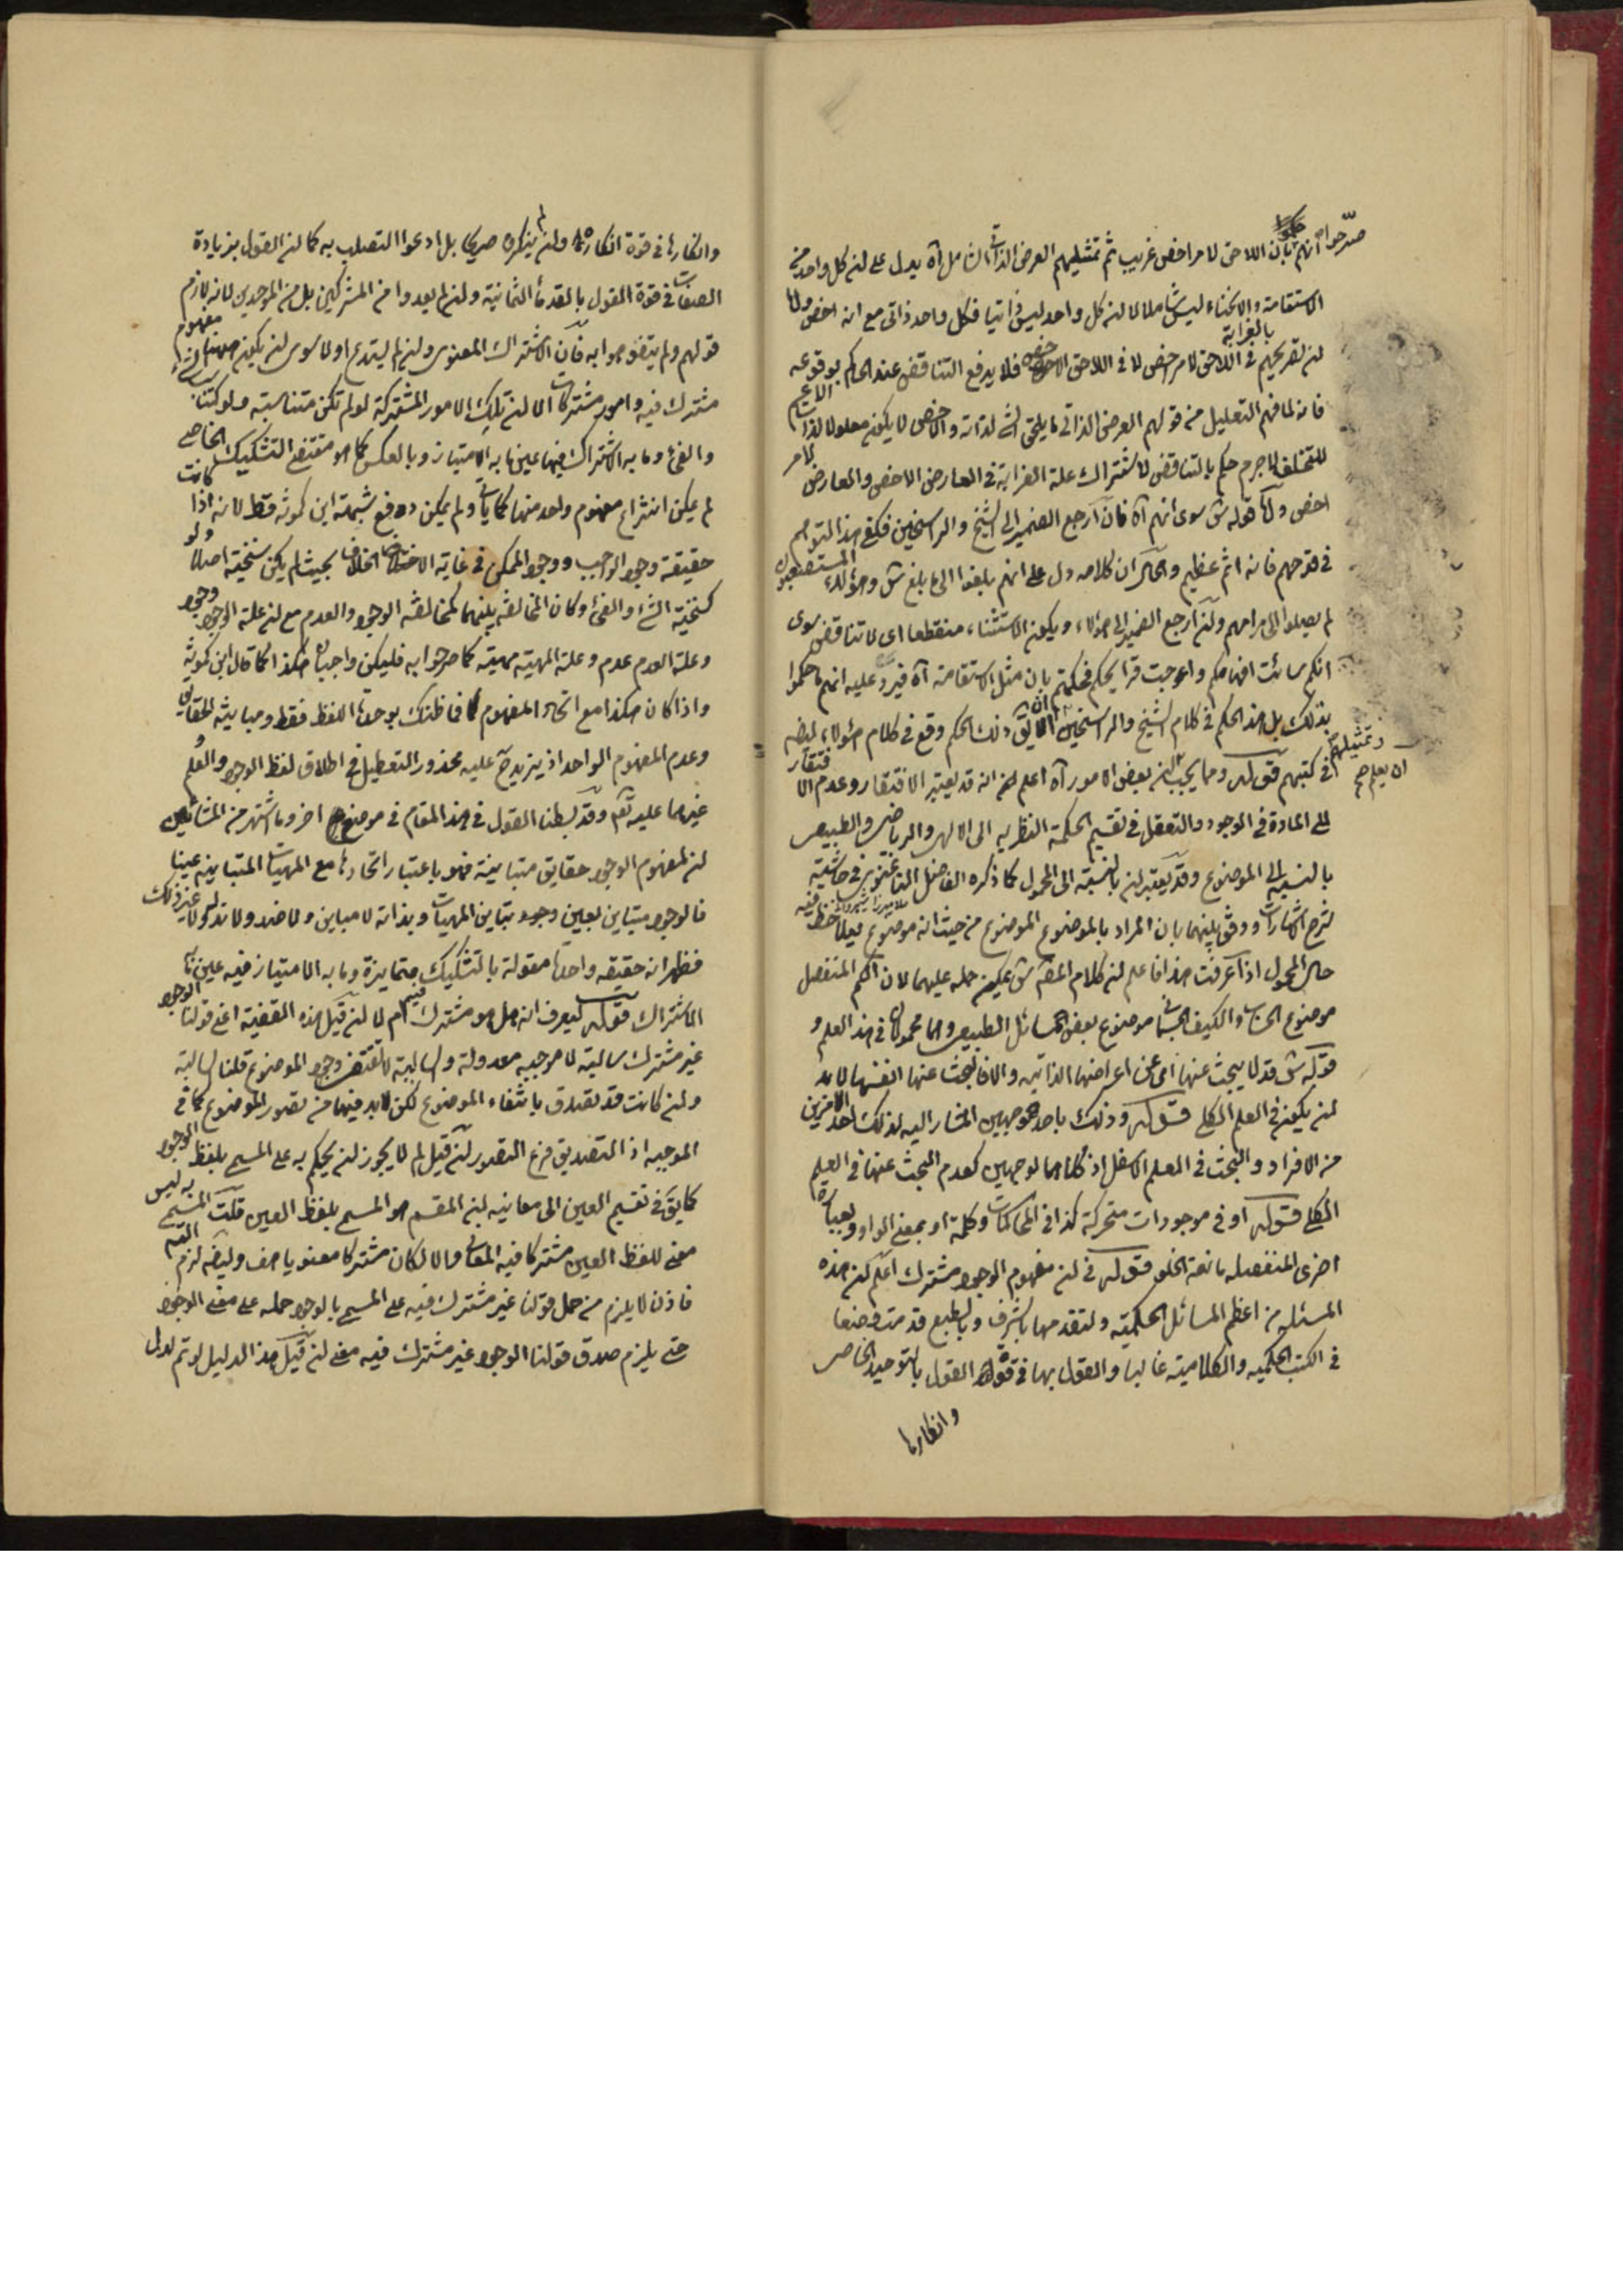 صرّحوا انهم بان اللاحق لامر اخص غريب ثم تمثيلهم العرض الذاتى الشامل آه يدل على ان كل واحد من
الاستقامة والانحناء ليس شاملا لا ان كل واحد ليس ذاتيا فكل واحد ذاتى مع انه اخص
ان تصريحهم فى اللاحق لامر اخص لا فى اللاحق الاخص فلا يدفع التناقض عند الحاكم بوقوعه
فانه لما فهم التعليل من قولهم العرض الذاتى ما يلحق الشئ لذاته والاخص لا يكون معلولا لذات الاعم
للتخلف لا جرم حكم بالتناقض لاشتراك علة الغرابة فى العارض الاخص والعارض لامر
اخص قوله ش سوى انهم آه فان ارجع الضمير الى الشيخ والراسخين فكفى هذا التوهم
فى قدحهم فانه اثم عظيم والحال ان كلامه دل على انهم بلغوا الى ما بلغ ش وهؤلاء المستصعبون
لم يصلوا الى مرامهم وان ارجع الضمير الى هؤلاء ويكون الاستثناء منقطعا اى لا تناقض سوى
انكم سائت افهامكم واعوجت قرايحكم فحكمتم بان مثل الاستقامة آه فيرد عليه انهم ما حكموا
بذلك بل هذا الحكم فى كلام الشيخ والراسخين ذلك الحكم وقع فى كلام هؤلاء ايضا
فى كتبهم قوله ومما يجب ان يعلم ان بعض الامور آه اعلم انه قد يعتبر الافتقار وعدم الافتقار
الى المادة فى الوجود والتعقل فى تقسيم الحكمة النظرية الى الالهى والرياضى والطبيعى
بالنسبة الى الموضوع وقد يعتبر ان بالنسبة الى المحمول كما ذكره الفاضل الباغنوى فى حاشية
شرح الاشارات ووفق بينهما بان المراد بالموضوع الموضوع من حيث انه موضوع فيلاحظ فيه
حال المحمول اذا عرفت هذا فاعلم ان كلام المص ش يمكن حمله عليهما لان الكم المنفصل
موضوع الحساب والكيف الجسمانى موضوع بعض المسائل الطبيعى وهما محمولان فى هذا العلم و
قوله ش قد لا يبحث عنها اى عن اعراضها الذاتية والا فالبحث عنها انفسها لا بد
ان يكون فى العلم الكلى قوله وذلك باحد الوجهين المشار اليه لذلك احد الامرين
من الافراد والبحث فى العلم الاسفل اذ كلاهما لوجهين كعدم البحث عنها فى العلم
الكلى قوله او فى موجودات متحركة كذا فى المحاكمات وكلمة او بمعنى الواو وبعبارة
اخرى المنفصلة مانعة الخلو قوله فى ان مفهوم الوجود مشترك اعلم ان هذه
المسئلة من اعظم المسائل الحكمية ولتقدمها بالشرف وبالطبع قدمت وضعا
فى الكتب الحكمية والكلامية غالبا والقول بها فى قوة القول بالتوحيد الخاصى
وانكارها
وانكارها فى قوة انكاره وان لم ينكره صريحا بل ادعوا التصلب به كما ان القول بزيادة
الصفات فى قوة القول بالقدماء الثمانية وان لم يعدوا من المشركين بل من الموحدين لانه لازم
قولهم ولم يتفوهوا به فان الاشتراك المعنوى وان لم يستدع اولا سوى ان يكون هيهنا مفهوم
مشترك فيه وامور مشتركات الا ان تلك الامور المشتركة لو لم تكن متناسبة ولو كتناسب الشئ
والفئ وما به الاشتراك فيها عين ما به الامتياز وبالعكس كما هو مقتضى التشكيك الخاصى
لم يمكن انتزاع مفهوم واحد منها كما ياتى ولم يمكن دفع شبهة ابن كمونة قط لانه اذا كانت
حقيقة وجود الواجب ووجود الممكن فى غاية الاختلاف بحيث لم يكن سنخية اصلا ولو
كسنخية الشئ والفئ وكان المخالفة بينهما كمخالفة الوجود والعدم مع ان علة الوجود وجود
وعلة العدم عدم وعلة المهية مهية كما صرحوا به فليكن واجبان هكذا كما قال ابن كمونة
واذا كان هكذا مع اتحاد المفهوم فما ظنك بوحدة اللفظ فقط ومباينة الحقايق
وعدم المفهوم الواحد اذ يزيد ح عليه محذور التعطيل فى اطلاق لفظ الوجود والعلم و
غيرهما عليه تعم وقد بسطنا القول فى هذا المقام فى موضع اخر وما اشتهر من المشائين
ان لمفهوم الوجود حقايق متباينة فهو باعتبار اتحادها مع المهيات المتباينة عينا
فالوجود متباين بعين وجود تباين المهيات وبذاته لا مباين ولا ضد ولا ند له ولا غير ذلك
فظهر انه حقيقة واحدة مقولة بالتشكيك متمايزة وما به الامتياز فيه عين ما به
الاشتراك قوله ليعرف انه هل هو مشترك فيه ام لا ان قيل هذه القضية اعنى قولنا الوجود
غير مشترك سالبة لا موجبة معدولة والسالبة لا تقتضى وجود الموضوع قلنا السالبة
وان كانت قد تصدق بانتفاء الموضوع لكن لابد فيها من تصور الموضوع كما فى
الموجبة اذ التصديق فرع التصور ان قيل لم لا يجوز ان يحكم به على المسمى بلفظ الوجود
كما يق فى تقسيم العين الى معانيه ان المقسم هو المسمى بلفظ العين قلت المسمى به ليس
معنى للفظ العين مشتركا فيه المعانى والا لكان مشتركا معنويا هف وايضا لزم
فاذن لا يلزم من حمل قولنا غير مشترك فيه على المسمى بالوجود حمله على معنى الوجود
حتى يلزم صدق قولنا الوجود غير مشترك فيه معنى ان قيل هذا الدليل لو تم لدل